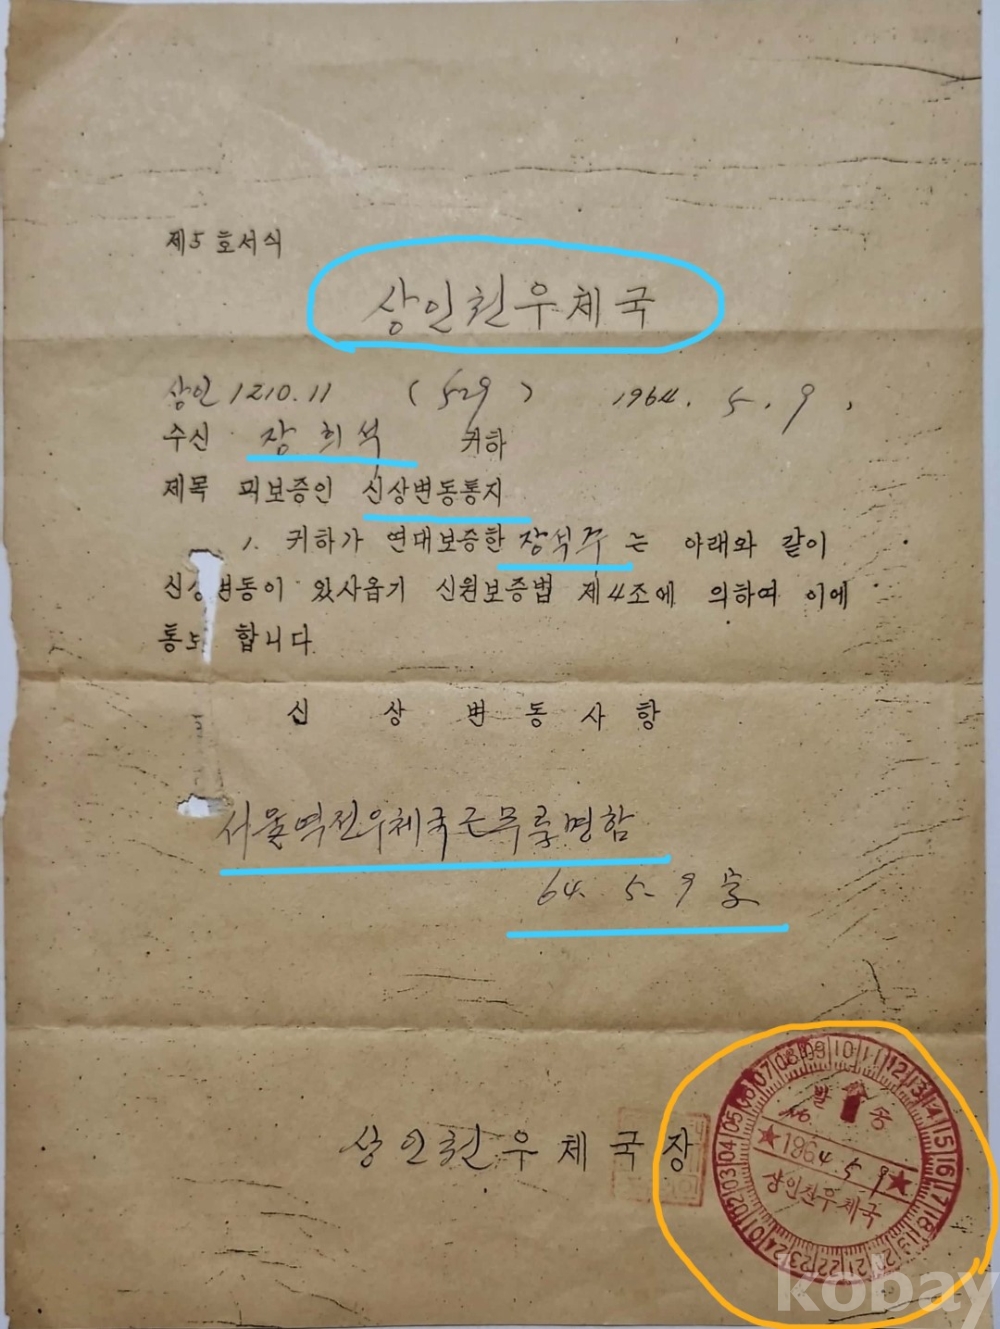 제5호서식
상인천우체국
상인 1210.11 (529) 1964. 5. 9.
수신 장희석 귀하
제목 피보증인 신상변동통지
1. 귀하가 연대보증한 장석주는 아래와 같이
신상변동이 있사옵기 신원보증법 제4조에 의하여 이에
통보 합니다.
신 상 변 동 사 항
서울역전우체국근무를명함
64. 5. 9 字
상인천우체국장
05 06 07 08 09 10 11 12 13 14 15 16 17 18 19 20 21 22 23 24 01 02 03 04
발송
★1964.5.9★
상인천우체국
kobay